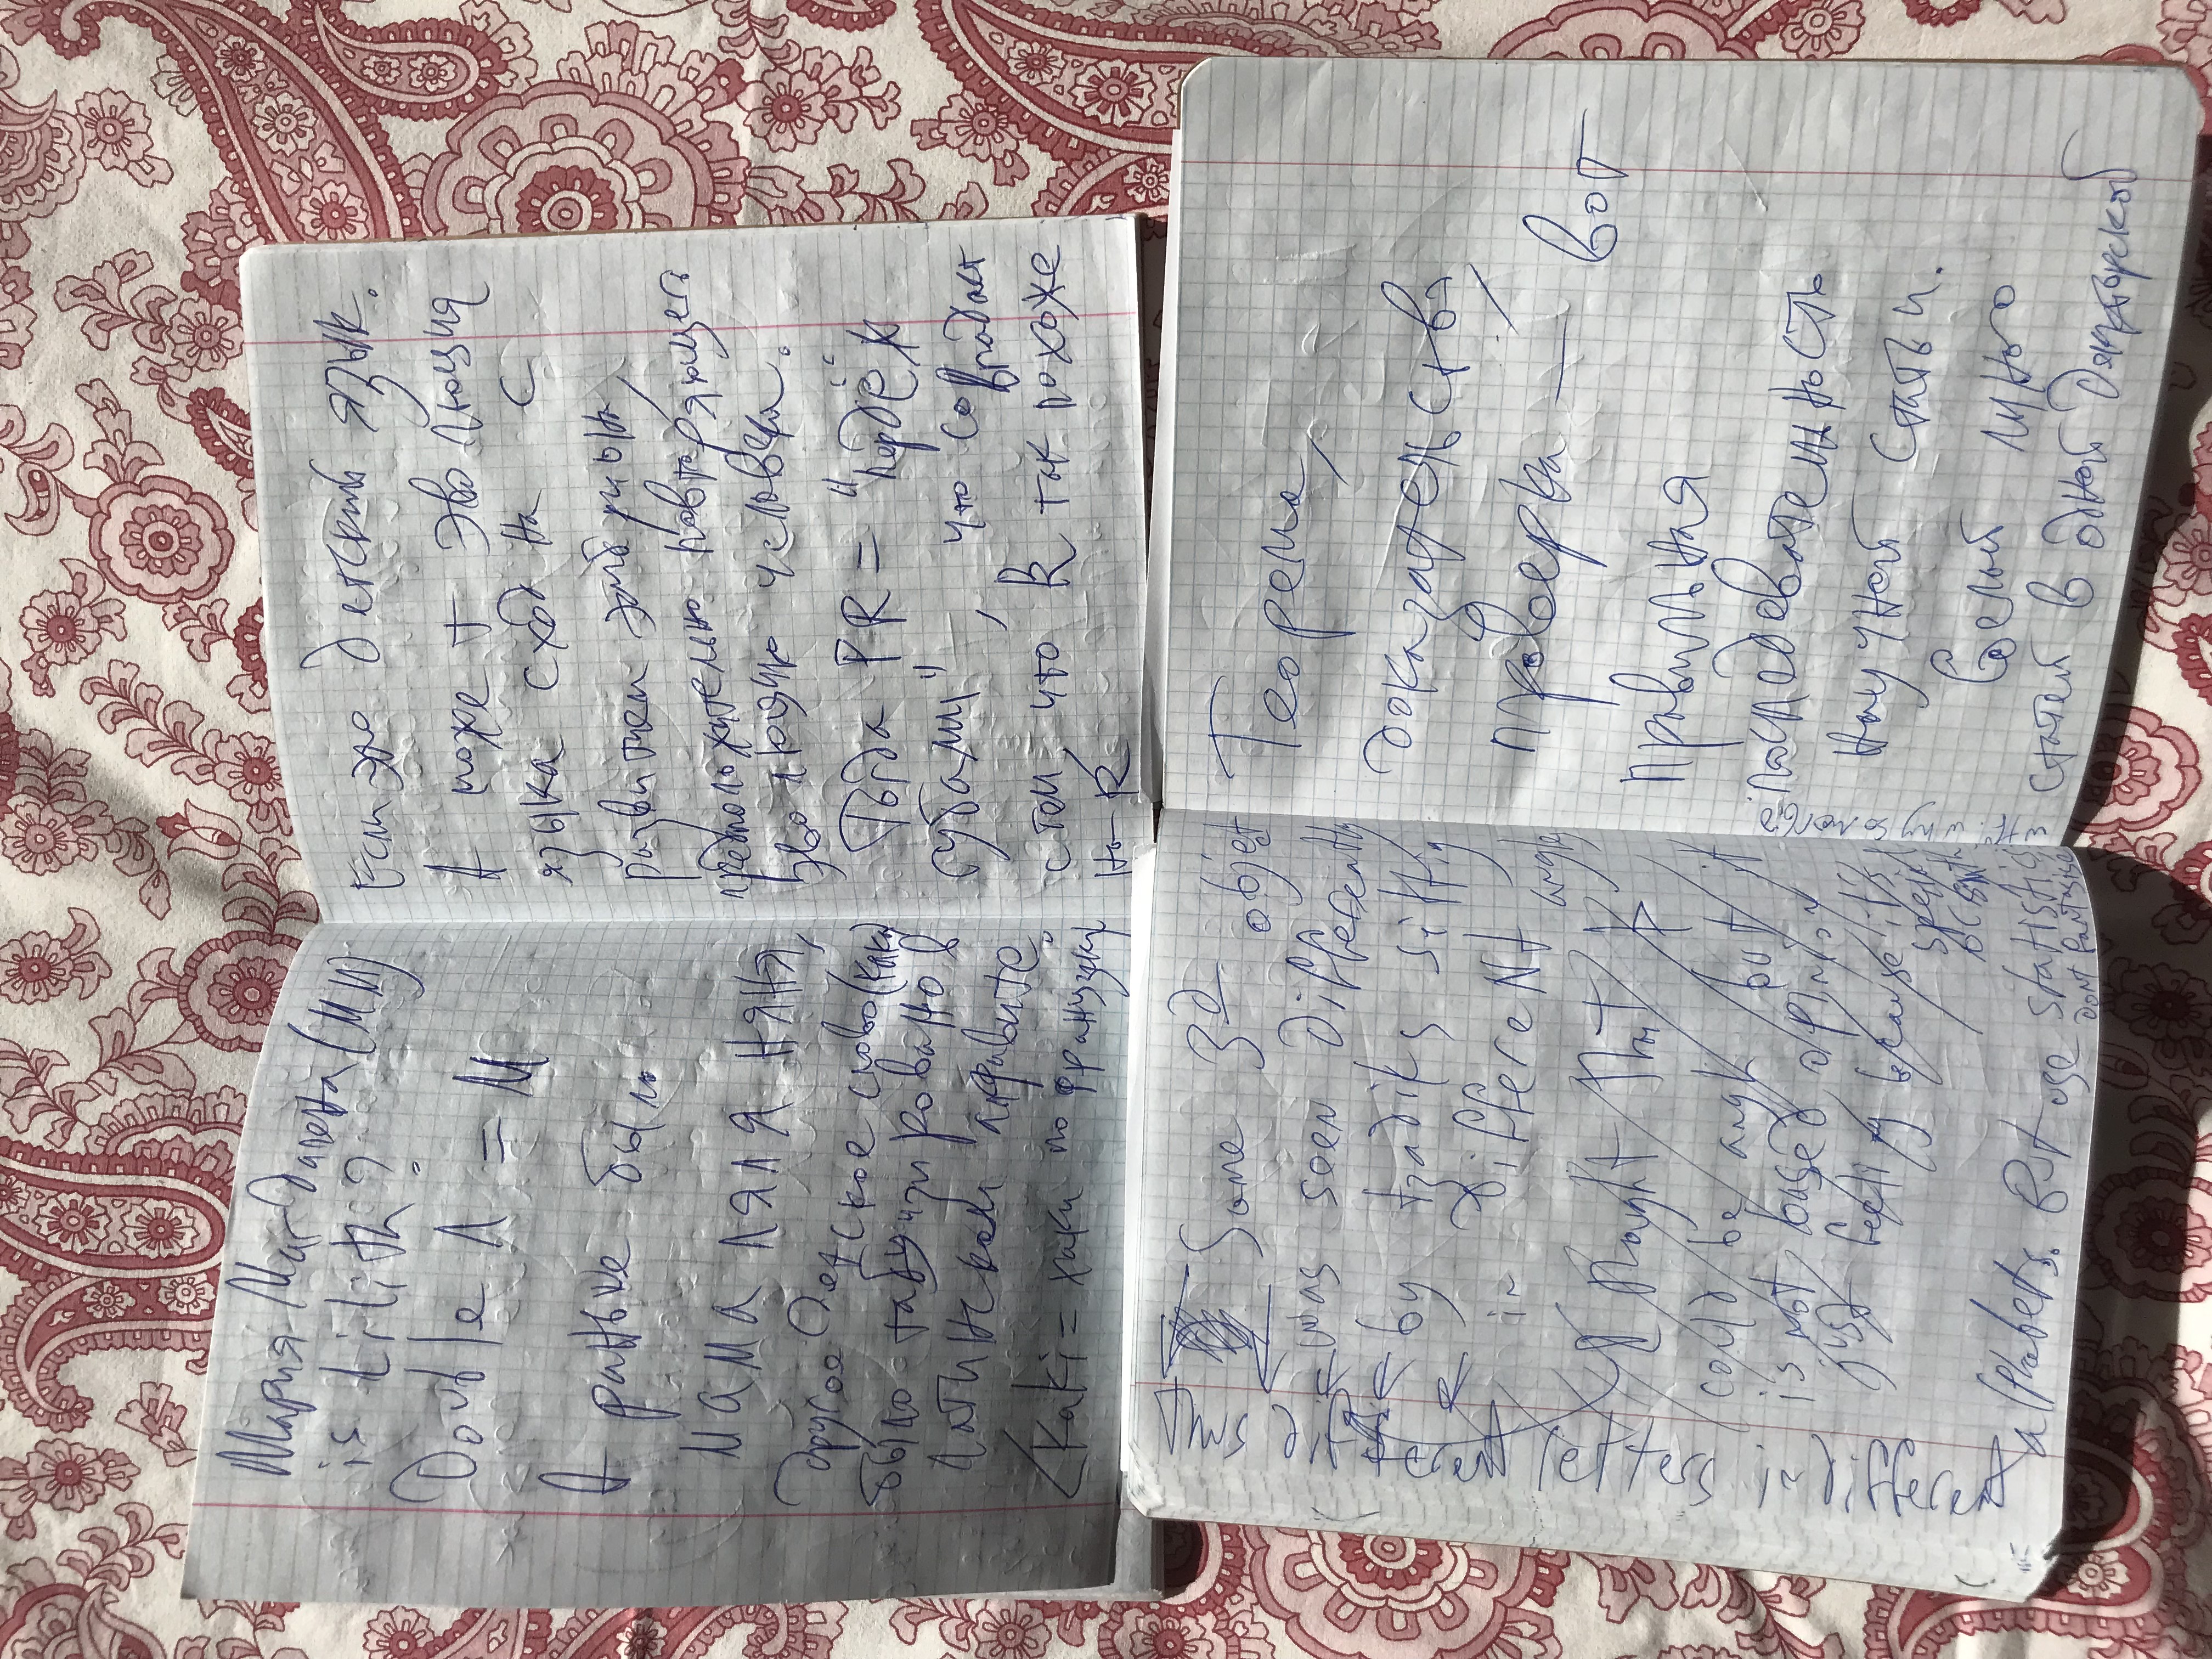 Мария Магдалена (ММ)
is Lilith?
Double Л = М
А раньше было
мама ляля няня,
другое детское слово (кака)
было табуировано в
латинском алфавите.
kaki = хаки по французски
Если это детский язык.
А може т эволюция
языка сходна с
развитием эмбриона,
предположительно повторяющего
эволюцию человека.
Тогда PR = "пердёж
губами", что совпадает
с тем, что R так похоже
на R
Some 3d objet
was seen differently
by tzadiks sittig
in different
angles
I thought that
could be angle but it
is not based opinion
just feeling because it's
special
Thus different letters in different
alphabets. But use statistics
dont fantasise
Теорема,
доказательство,
проверка — вот
правильная
последовательность
научной статьи.
Сделай много
статей в одной докторской